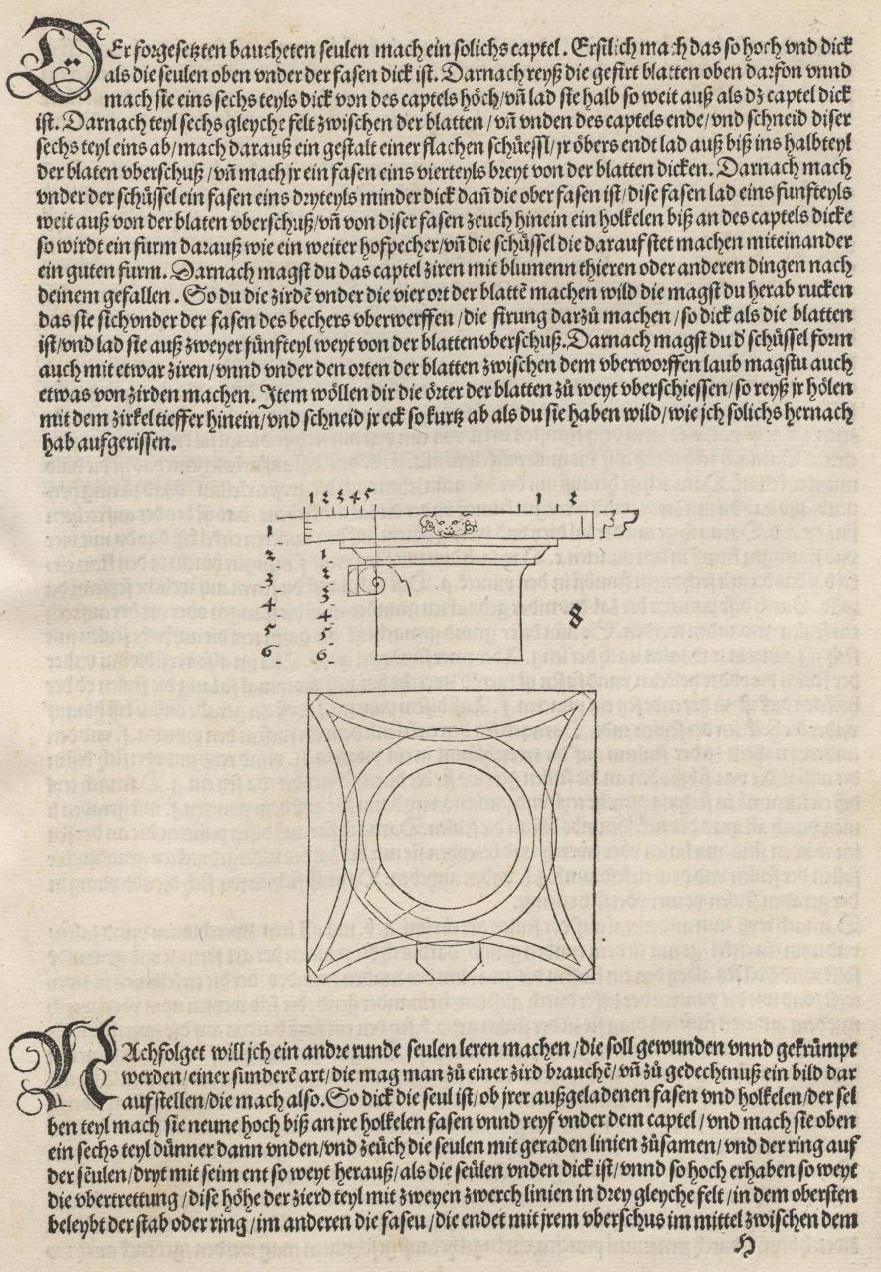 DEr forgesetzten baucheten seulen mach ein solichs captel. Erstlich mach das so hoch vnd dick
als die seulen oben vnder der fasen dick ist. Darnach reyß die gefirt blatten oben darfon vnnd
mach sie eins sechs teyls dick von des captels höch/vñ lad sie halb so weit auß als dz captel dick
ist. Darnach teyl sechs gleyche felt zwischen der blatten/vñ vnden des captels ende/vnd schneid diser
sechs teyl eins ab/mach darauß ein gestalt einer flachen schüessl/jr öbers endt lad auß biß ins halbteyl
der blaten vberschuß/vñ mach jr ein fasen eins vierteyls breyt von der blatten dicken. Darnach mach
vnder der schüssel ein fasen eins dryteyls minder dick dañ die ober fasen ist/dise fasen lad eins funfteyls
weit auß von der blaten vberschuß/vñ von diser fasen zeuch hinein ein holkelen biß an des captels dicke
so wirdt ein furm darauß wie ein weiter hofpecher/vñ die schüssel die darauf stet machen miteinander
ein guten furm. Darnach magst du das captel ziren mit blumenn thieren oder anderen dingen nach
deinem gefallen. So du die zirdẽ vnder die vier ort der blattẽ machen wild die magst du herab rucken
das sie sich vnder der fasen des bechers vberwerffen/die firung darzů machen/so dick als die blatten
ist/vnd lad sie auß zweyer fünfteyl weyt von der blatten vberschuß. Darnach magst du d' schüssel form
auch mit etwar ziren/vnnd vnder den orten der blatten zwischen dem vberworffen laub magstu auch
etwas von zirden machen. Item wöllen dir die örter der blatten zů weyt vberschiessen/so reyß jr hölen
mit dem zirkel tieffer hinein/vnd schneid jr eck so kurtz ab als du sie haben wild/wie jch solichs hernach
hab aufgerissen.
1 2 3 4 5 1 2
1
2 1
3 2
4 3
4
5 5
6 6
8
NAchfolget will jch ein andre runde seulen leren machen/die soll gewunden vnnd gekrümpt
werden/einer sunderẽ art/die mag man zů einer zird brauchẽ/vñ zů gedechtnuß ein bild dar
auf stellen/die mach also. So dick die seul ist/ob jrer außgeladenen fasen vnd holkelen/der sel
ben teyl mach sie neune hoch biß an jre holkelen fasen vnnd reyf vnder dem captel/vnd mach sie oben
ein sechs teyl dünner dann vnden/vnd zeüch die seulen mit geraden linien zůsamen/vnd der ring auf
der sẽulen/dryt mit seim ent so weyt herauß/als die seülen vnden dick ist/vnnd so hoch erhaben so weyt
die vbertrettung/dise höhe der zierd teyl mit zweyen zwerch linien in drey gleyche felt/in dem obersten
beleybt der stab oder ring/im anderen die fasen/die endet mit jrem vberschus im mittel zwischen dem
H